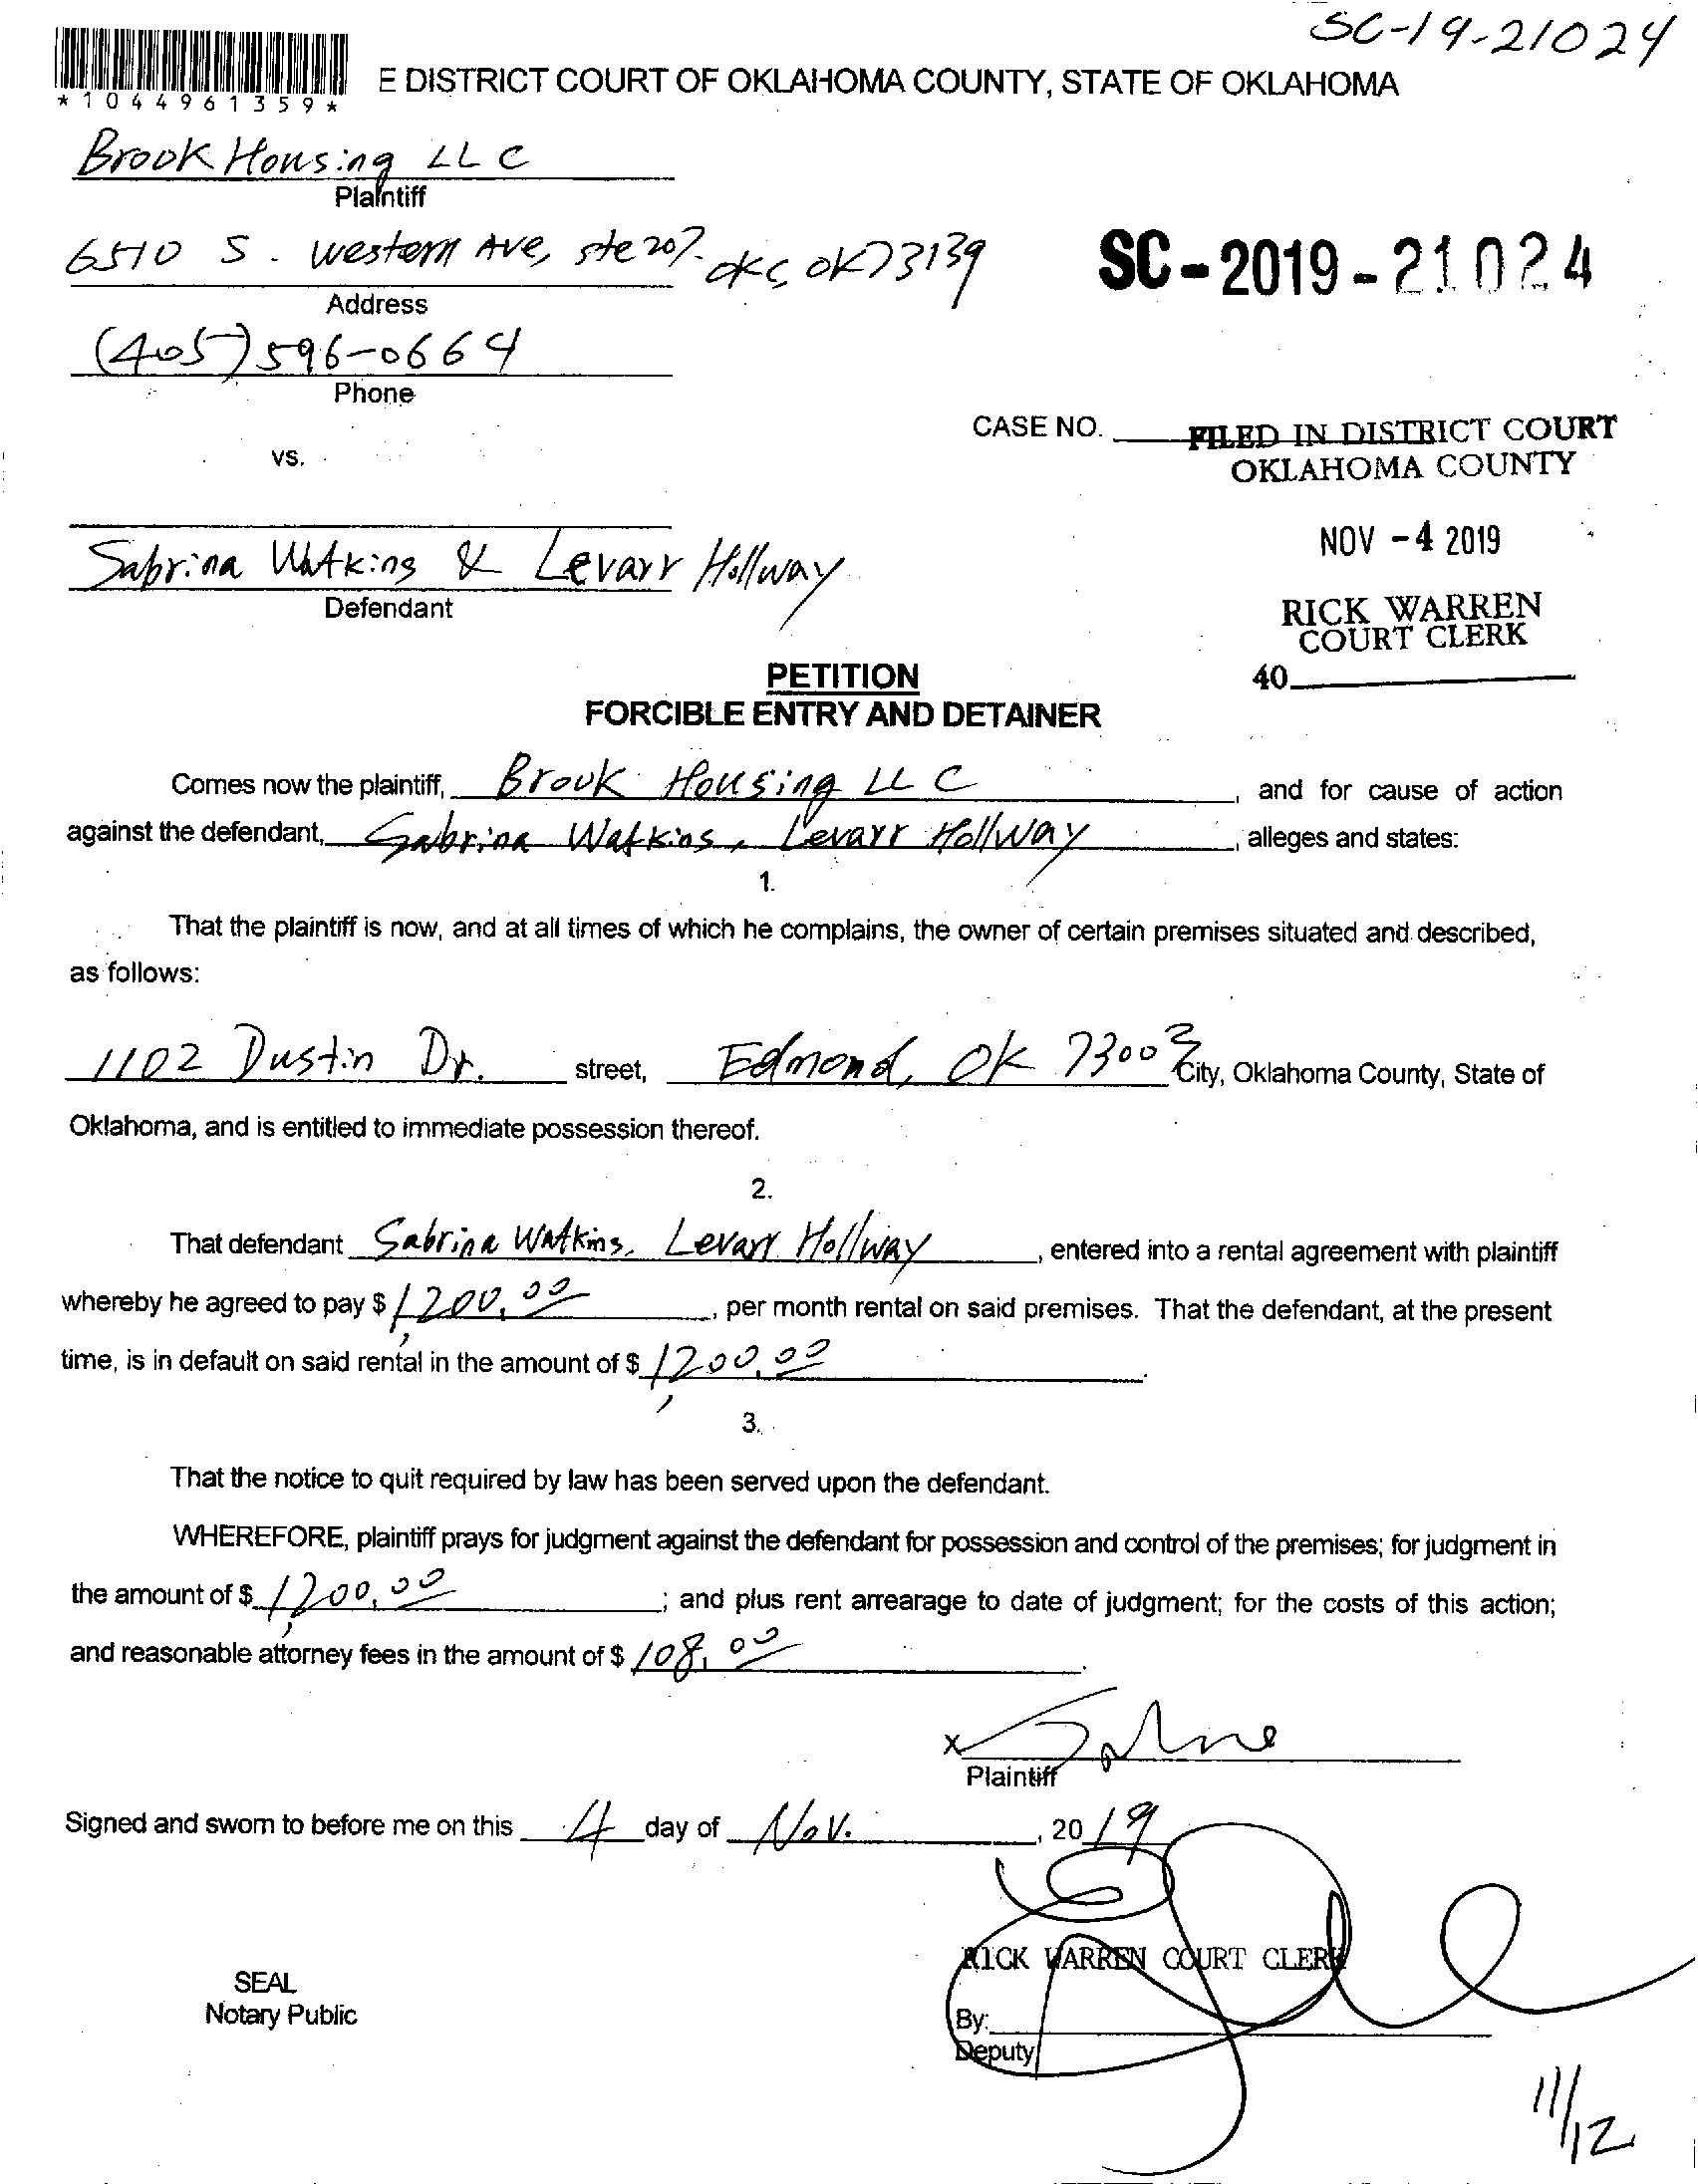 SC-19-21024
*1044961359*
E DISTRICT COURT OF OKLAHOMA COUNTY, STATE OF OKLAHOMA
Brook Housing LLC
Plaintiff
6510 S. Western Ave, ste 207. OKC, OK 73139
Address
SC-2019-21024
(405) 596-0664
Phone
CASE NO.
FILED IN DISTRICT COURT
OKLAHOMA COUNTY
vs.
NOV -4 2019
Sabrina Watkins & Levarr Hollway
Defendant
RICK WARREN
COURT CLERK
40
PETITION
FORCIBLE ENTRY AND DETAINER
Comes now the plaintiff, Brook Housing LLC, and for cause of action
against the defendant, Sabrina Watkins, Levarr Hollway, alleges and states:
1.
That the plaintiff is now, and at all times of which he complains, the owner of certain premises situated and described,
as follows:
1102 Dustin Dr. street, Edmond, OK 73003 City, Oklahoma County, State of
Oklahoma, and is entitled to immediate possession thereof.
2.
That defendant Sabrina Watkins, Levarr Hollway, entered into a rental agreement with plaintiff
whereby he agreed to pay $ 1,200.00, per month rental on said premises. That the defendant, at the present
time, is in default on said rental in the amount of $ 1,200.00.
3.
That the notice to quit required by law has been served upon the defendant.
WHEREFORE, plaintiff prays for judgment against the defendant for possession and control of the premises; for judgment in
the amount of $ 1,200.00; and plus rent arrearage to date of judgment; for the costs of this action;
and reasonable attorney fees in the amount of $ 108.00.
x
Plaintiff
Signed and sworn to before me on this 4 day of Nov., 2019
RICK WARREN COURT CLERK
SEAL
Notary Public
By:
Deputy
11/12